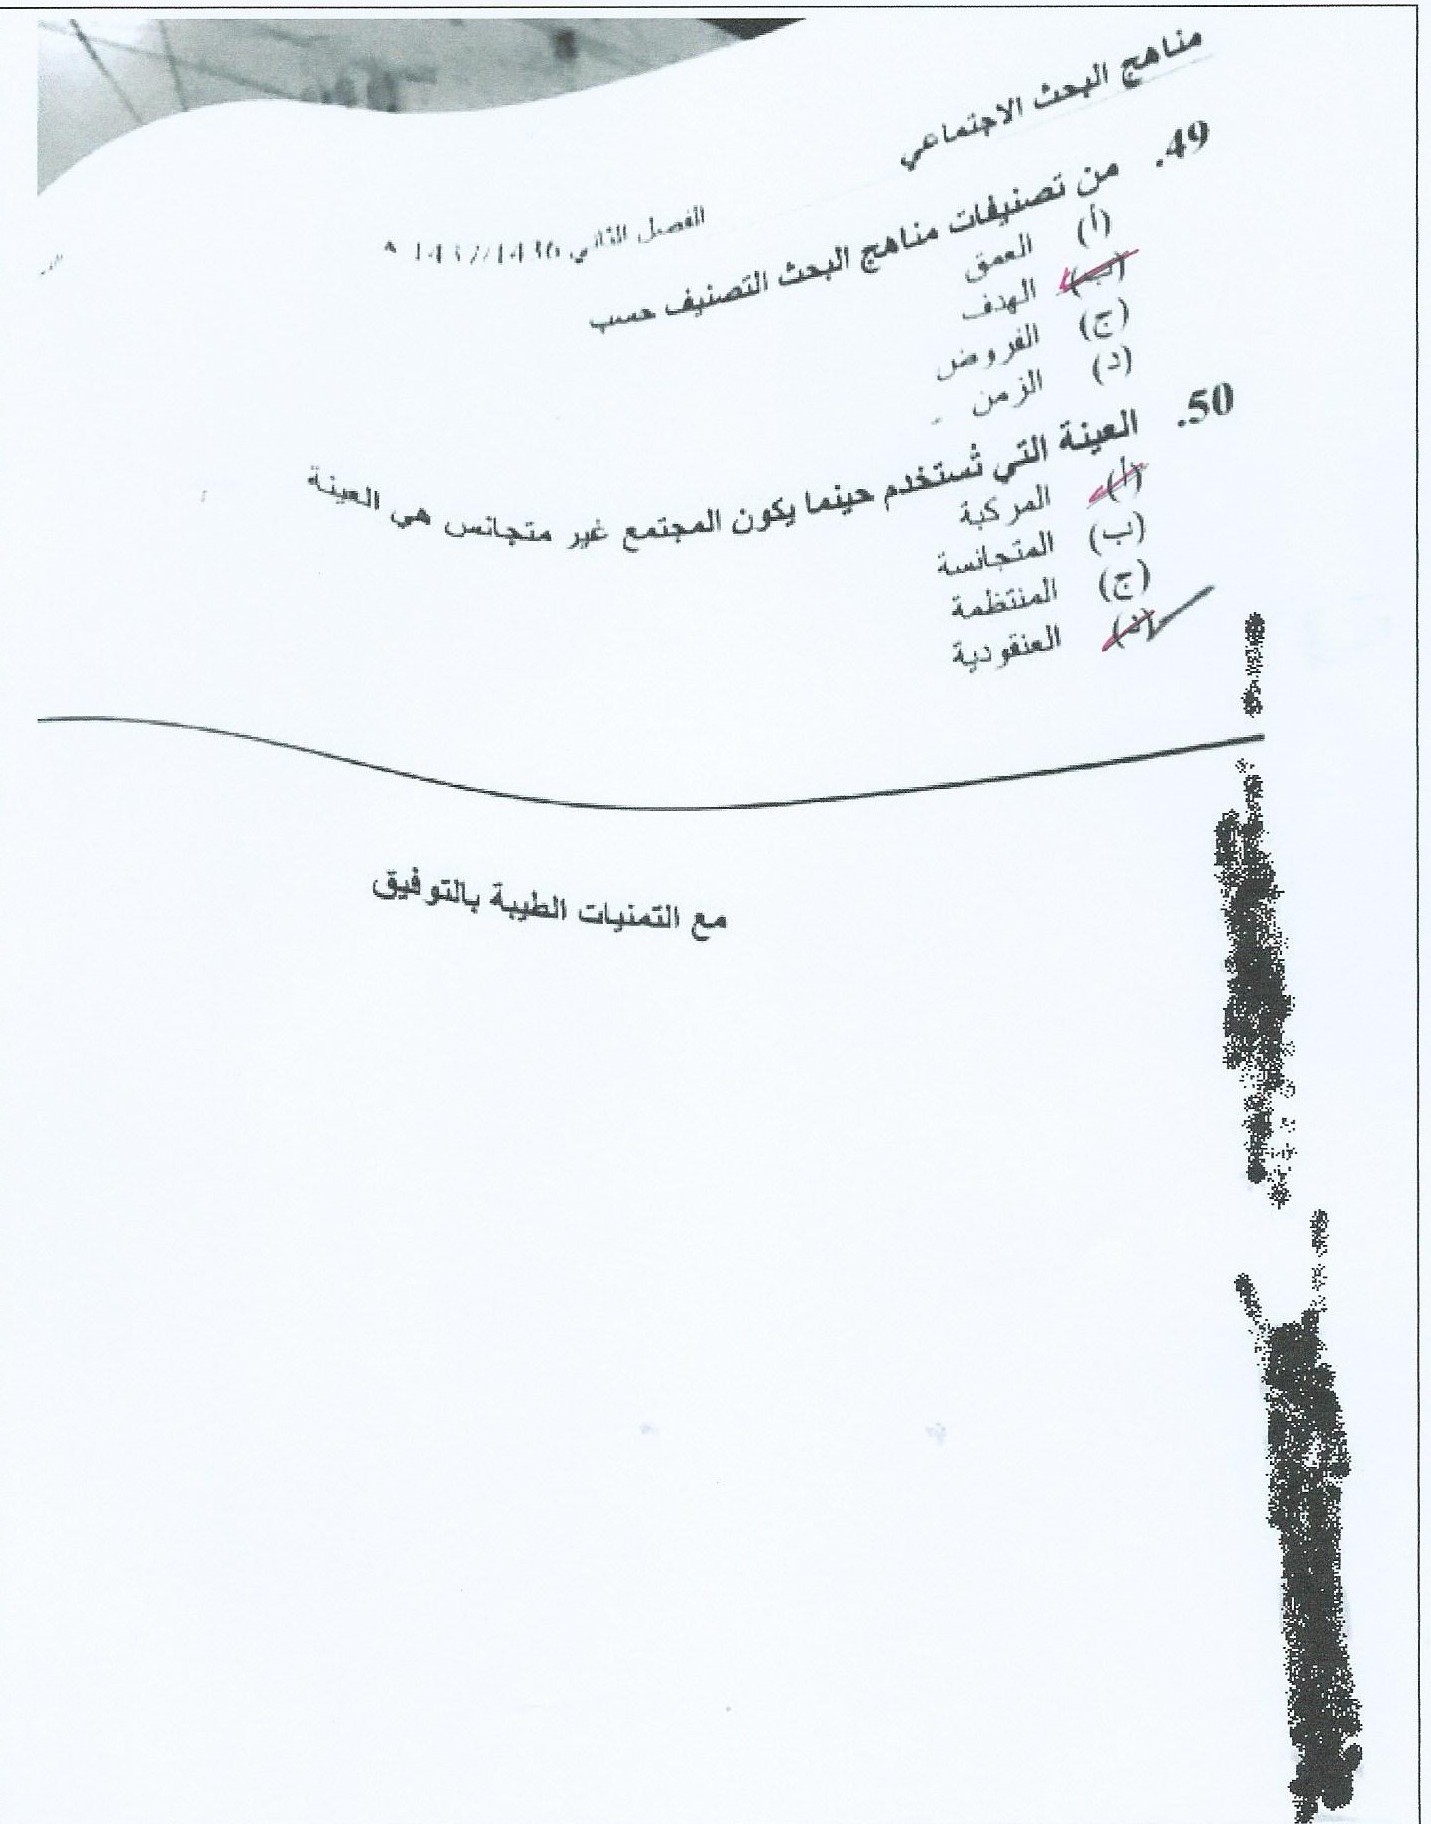 مناهج البحث الاجتماعي
الفصل الثاني 1437/1436 ه
49. من تصنيفات مناهج البحث التصنيف حسب
(أ) العمق
(ب) الهدف
(ج) الفروض
(د) الزمن
50. العينة التي تُستخدم حينما يكون المجتمع غير متجانس هي العينة
(أ) المركبة
(ب) المتجانسة
(ج) المنتظمة
(د) العنقودية
مع التمنيات الطيبة بالتوفيق